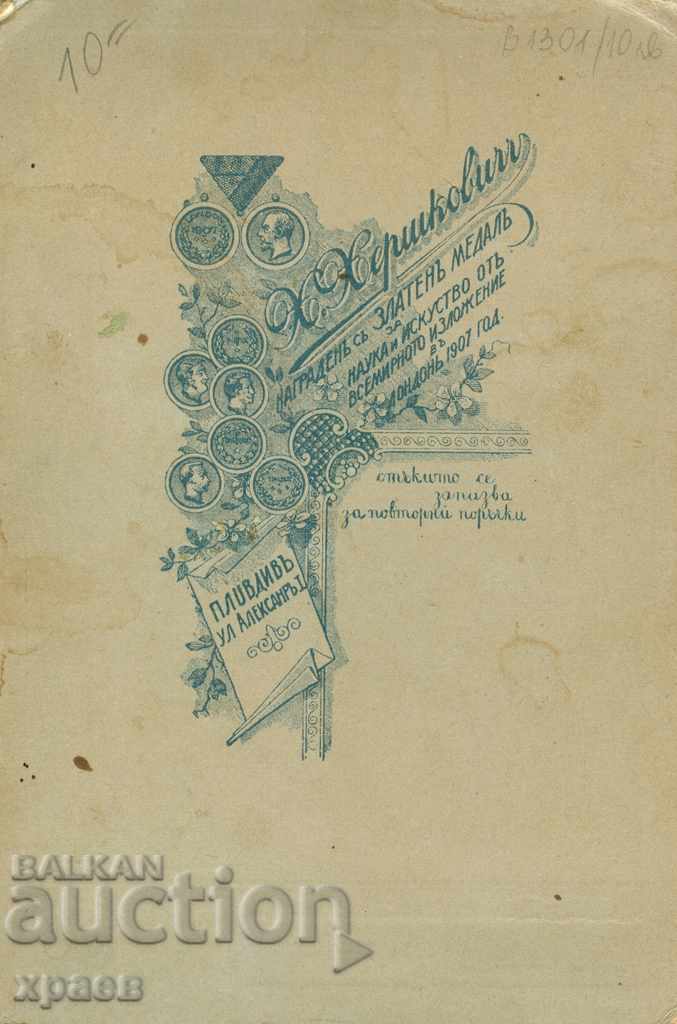 10"
В 1301/10 лв
Х. Хершковичъ
НАГРАДЕНЪ СЪ ЗЛАТЕНЪ МЕДАЛЪ
ЗА
НАУКА И ИСКУСТВО ОТЪ
ВСЕМИРНОТО ИЗЛОЖЕНИЕ
ВЪ
ЛОНДОНЪ 1907 ГОД.
1907
стъклито се
запазва
за повторни поръчки
ПЛИВДИВЪ
УЛ АЛЕКСАНРЪ I
BALKAN
auction
храев